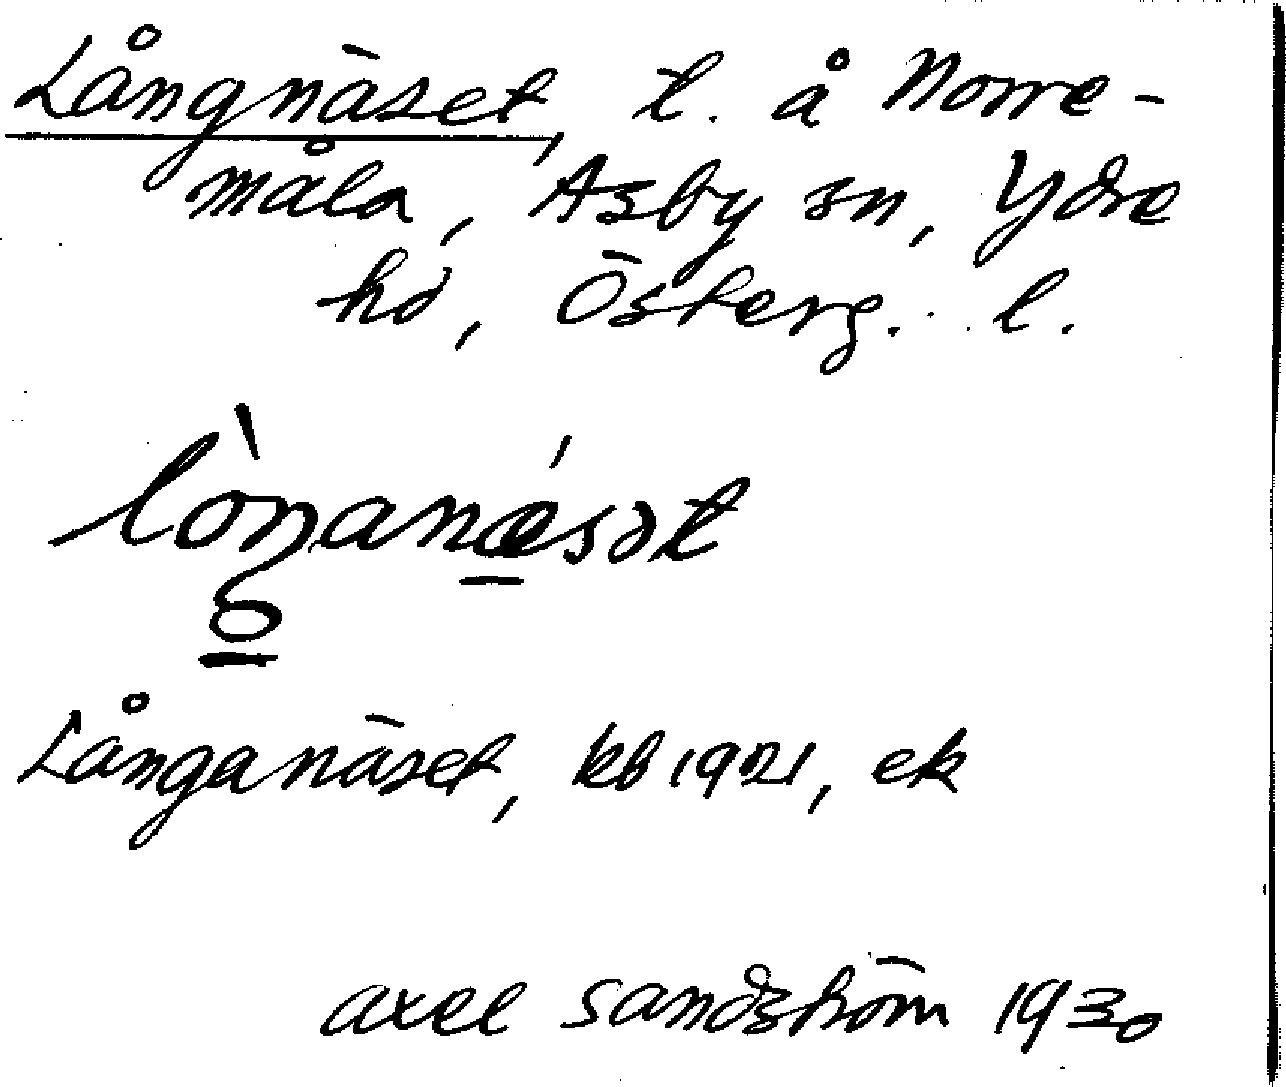 Långnäset, t. å Norre-
måla, Asby sn, Ydre
hd, Österg. l.
Långanäset, kb 1921, ek
Axel Sandström 1930